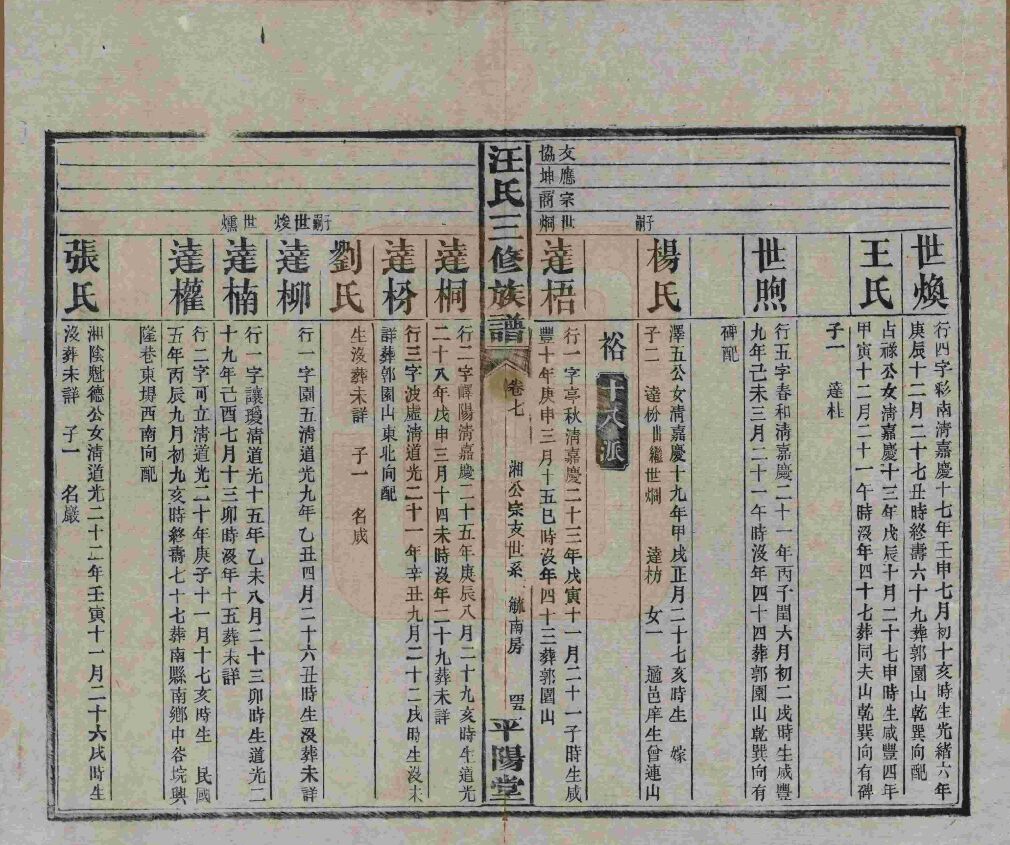 世煥
行四字彩南淸嘉慶十七年壬申七月初十亥時生光緖六年
庚辰十二月二十七丑時終壽六十九葬郭園山乾巽向配
王氏
占祿公女淸嘉慶十三年戊辰十月二十七申時生咸豐四年
甲寅十二月二十一午時沒年四十七葬同夫山乾巽向有碑
子一 達桂
世煦
行五字春和淸嘉慶二十一年丙子閏六月初二戌時生咸豐
九年己未三月二十一午時沒年四十四葬郭園山乾巽向有
碑配
子嗣
楊氏
澤五公女淸嘉慶十九年甲戌正月二十七亥時生 嫁
子二 達枌出繼世烱 達枋 女一 適邑庠生曾連山
裕
十八派
友應宗世
協坤商烱
達梧
行一字亭秋淸嘉慶二十三年戊寅十一月二十一子時生咸
豐十年庚申三月十五巳時沒年四十三葬郭園山
汪氏三修族譜
卷七 湘公宗支世系 毓南房
平陽堂
達桐
行二字嶧陽淸嘉慶二十五年庚辰八月二十九亥時生道光
二十八年戊申三月十四未時沒年二十九葬未詳
達枌
行三字波虛淸道光二十一年辛丑九月二十二戌時生沒未
詳葬郭園山東北向配
劉氏
生沒葬未詳 子一 名咸
子嗣世焌
達柳
行一字園五淸道光九年乙丑四月二十六丑時生沒葬未詳
世燻
達楠
行一字讓瓊淸道光十五年乙未八月二十三卯時生道光二
十九年己酉七月十三卯時沒年十五葬未詳
達權
行二字可立淸道光二十年庚子十一月十七亥時生 民國
五年丙辰九月初九亥時終壽七十七葬南縣南鄉中咨垸興
隆巷東堺西南向配
張氏
湘陰魁德公女淸道光二十二年壬寅十一月二十六戌時生
沒葬未詳 子一 名嚴